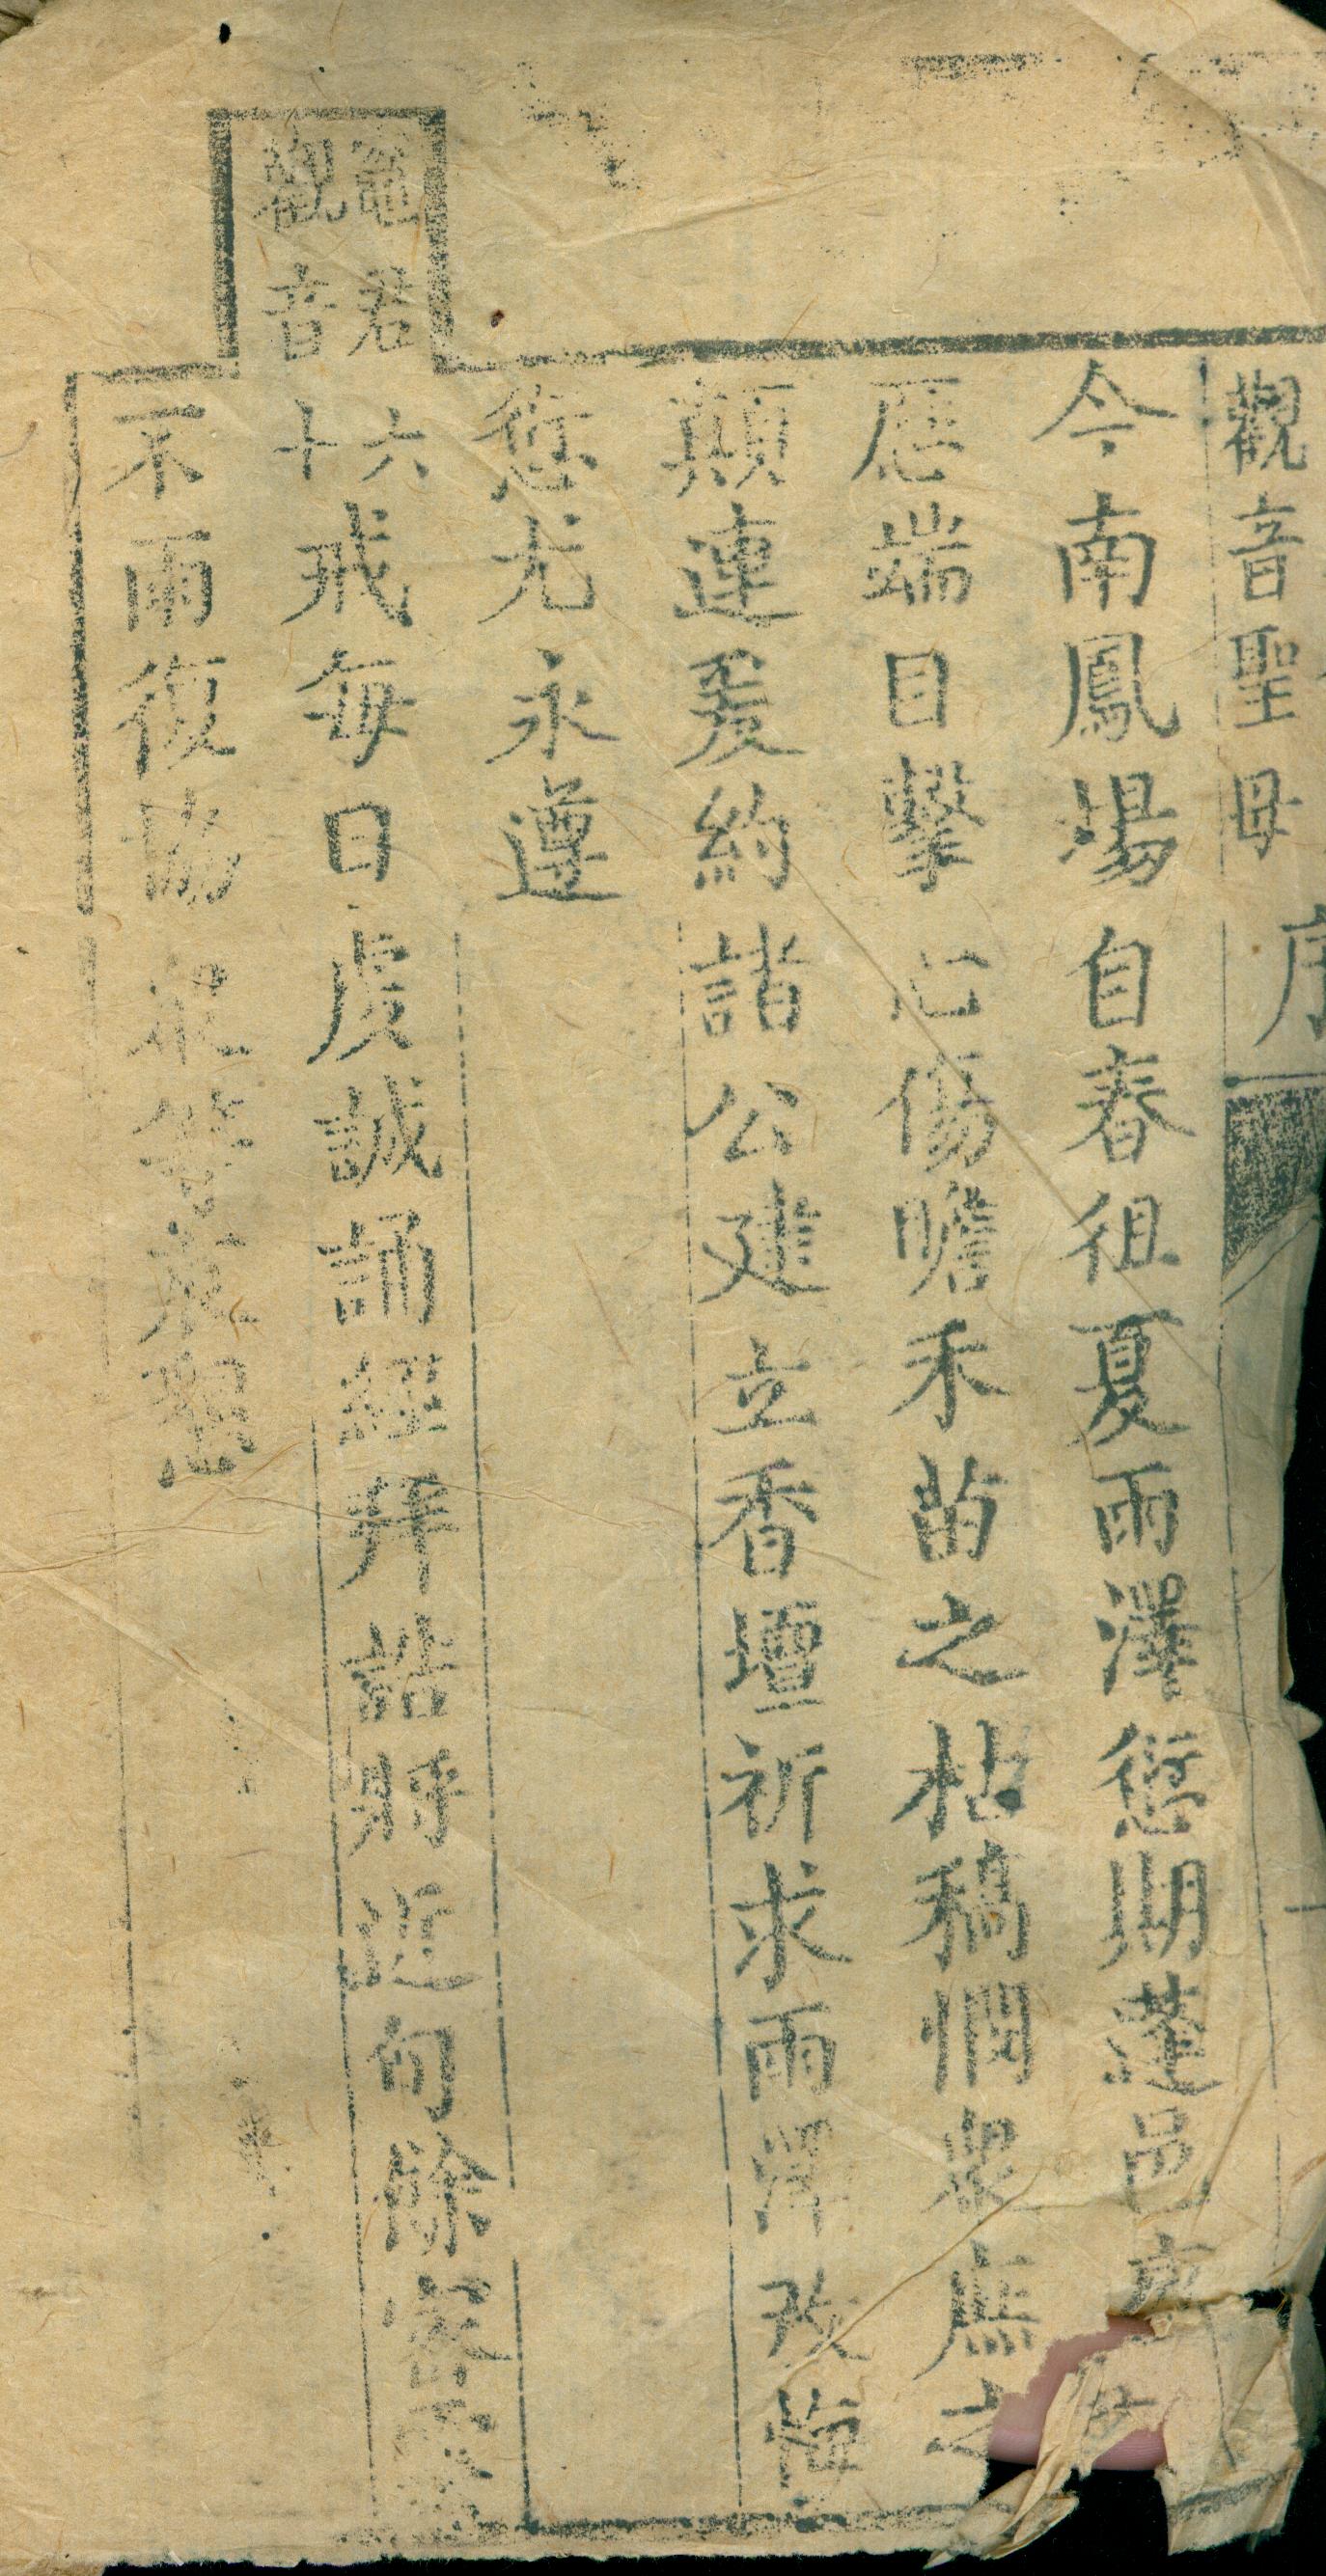 觀音聖母 序
今南鳳場自春徂夏雨澤愆期蓬邑
歷端目擊心傷瞻禾苗之枯稿憫衆庶之
顛連爰約諸公建立香壇祈求雨澤改悔
愆尤永遵
竈君六
觀音十
戒每日虔誠誦經拜誥將近旬餘家
不雨復協衆等哀懇